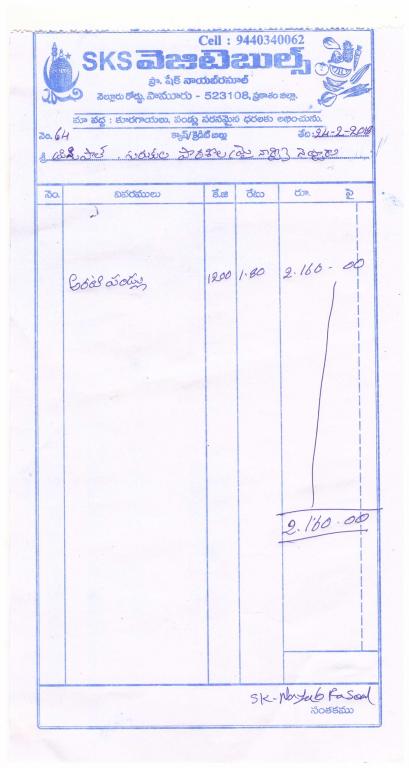 Cell : 9440340062
SKS వెజిటెబుల్స్
ప్రొ. షేక్ నాయబ్‌రసూల్
నెల్లూరు రోడ్డు, పామూరు - 523108, ప్రకాశం జిల్లా.
మా వద్ద : కూరగాయలు, పండ్లు సరసమైన ధరలకు లభించును.
నెం. 64 క్యాష్/క్రెడిట్ బిల్లు తేది 24-2-2018
శ్రీ గురుకుల పాఠశాల
నెం. వివరములు కే.జి రేటు రూ. పై
అరటి పండ్లు 1200 1.80 2.160 - 00
2.160.00
SK. Nayab Rasool
సంతకము